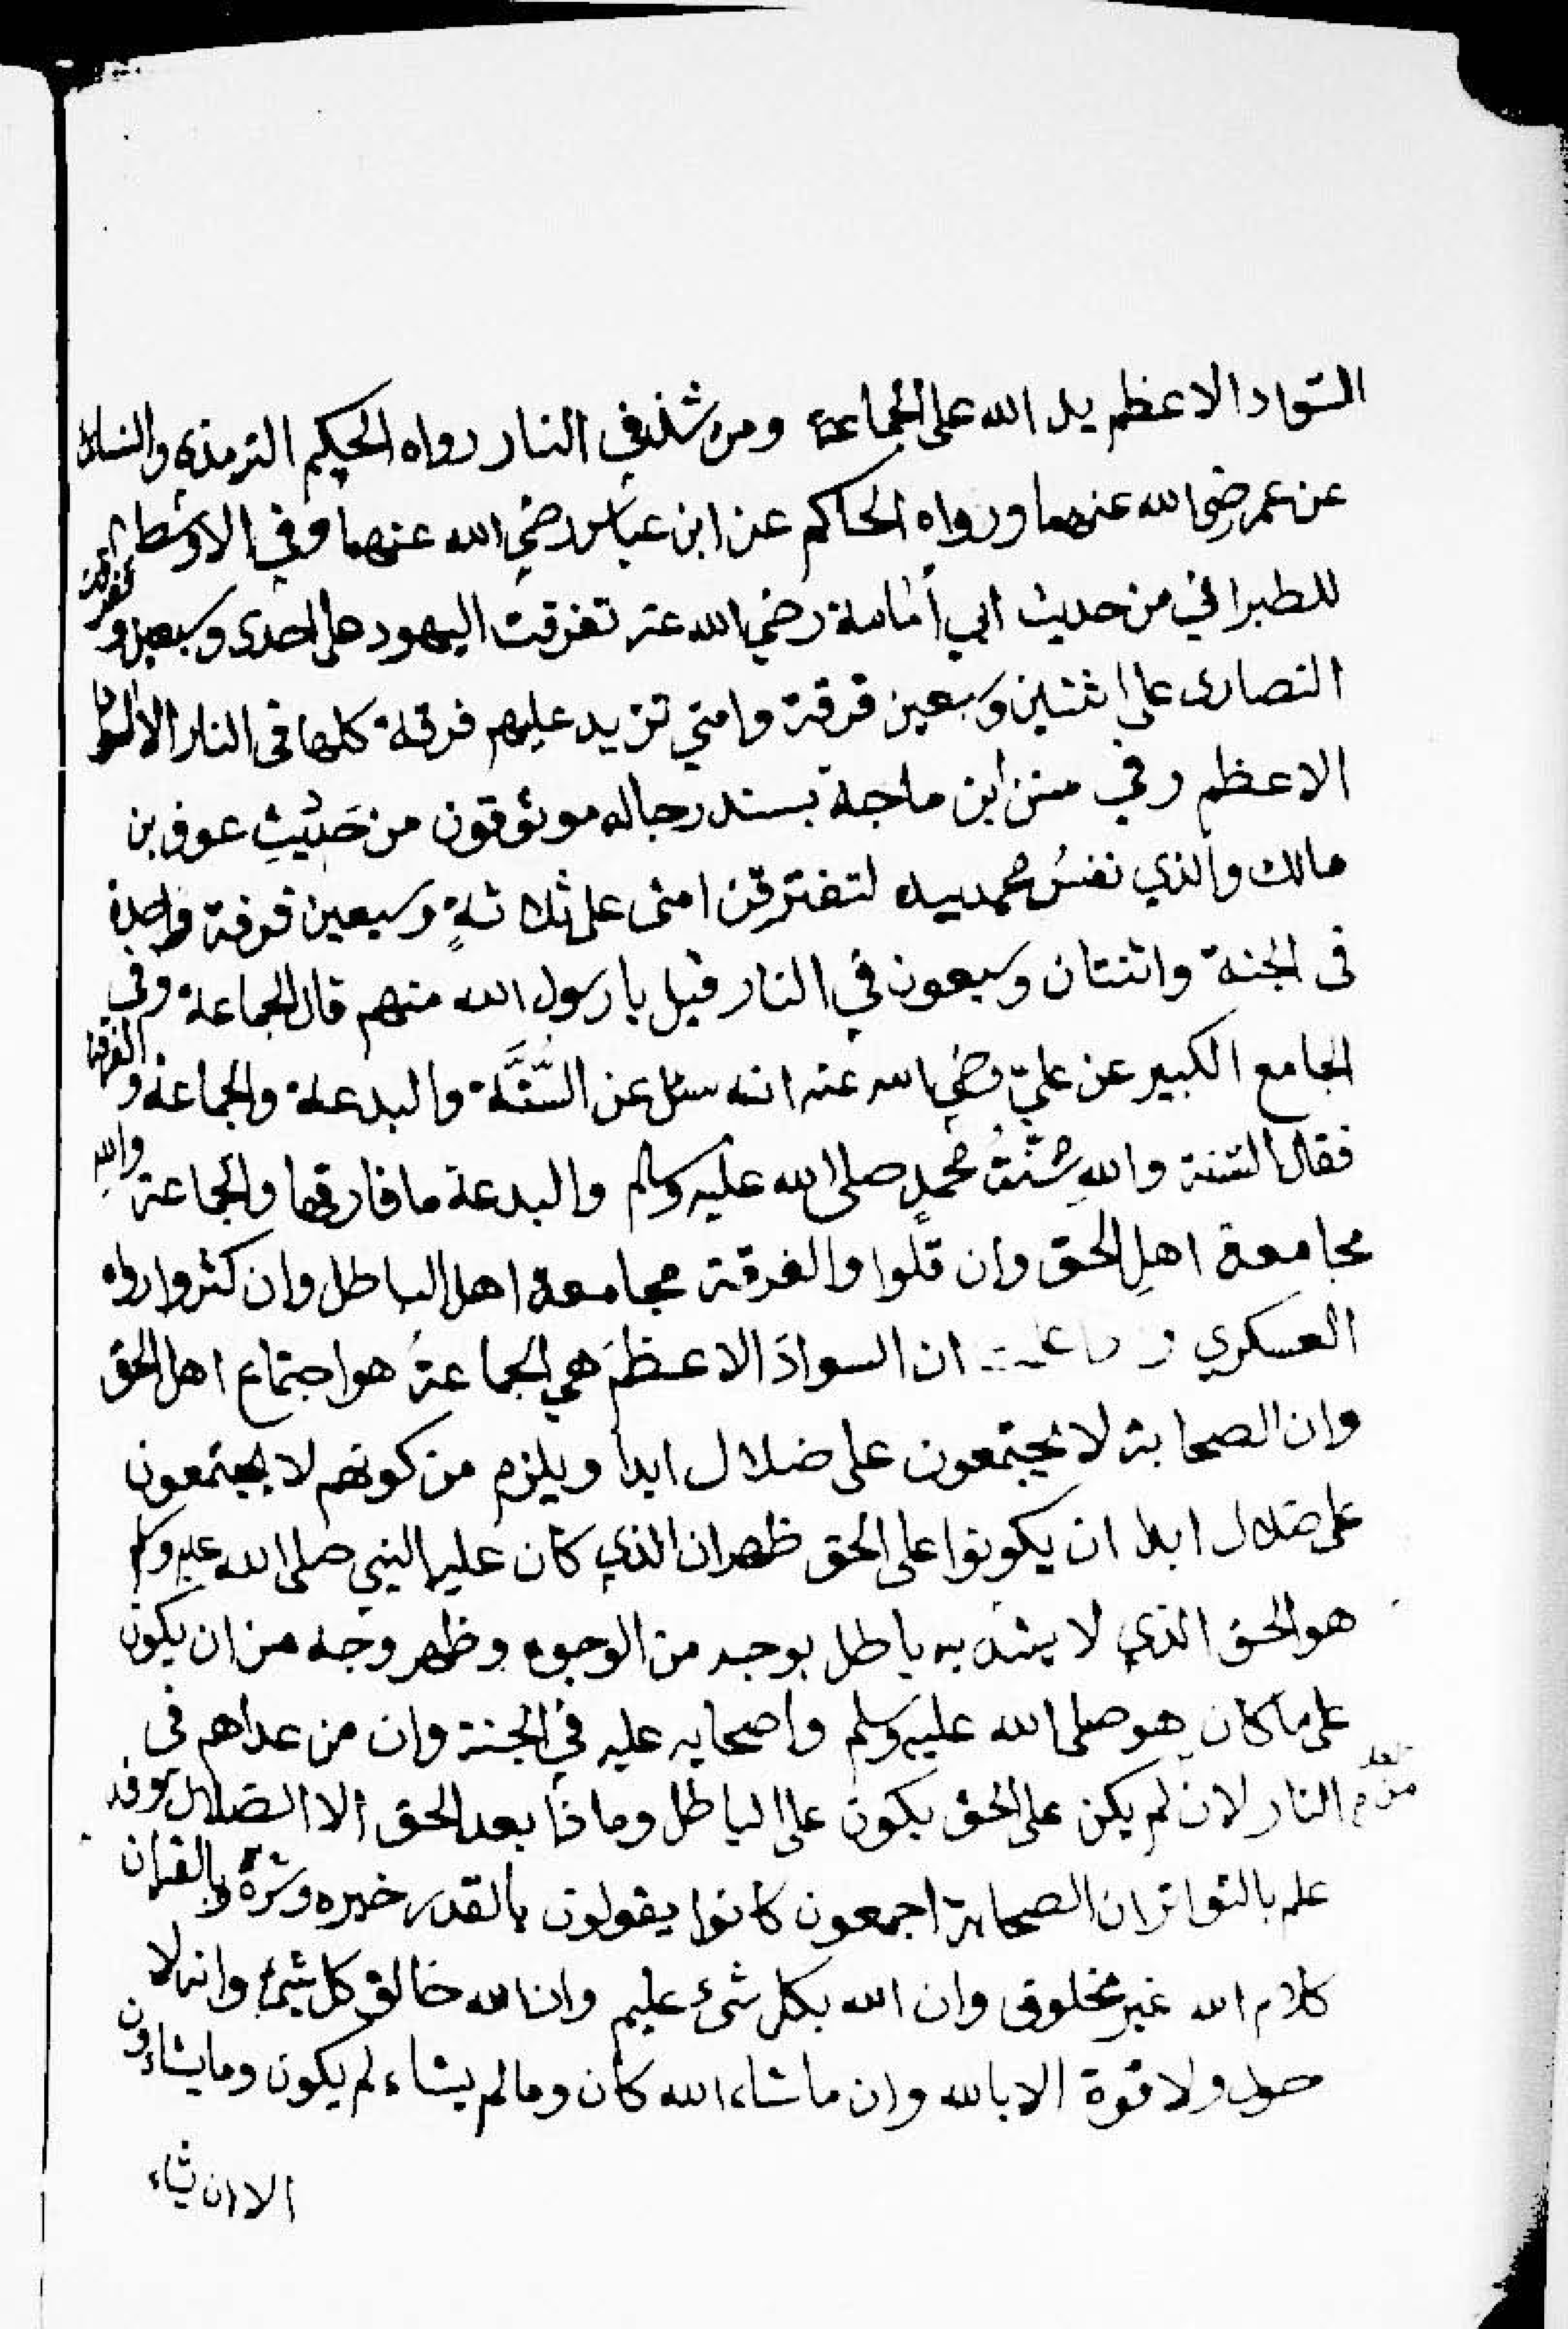 السّواد الاعظم يد الله على الجماعة ومن شذ في النار رواه الحكيم الترمذي والنسائي
عن عمر رضي الله عنهما ورواه الحاكم عن ابن عباس رضي الله عنهما وفي الاوسط
للطبراني من حديث ابي أمامة رضي الله عنه تفرقت اليهود على احدى وسبعين و
النصارى على اثنتين وسبعين فرقة وامتي تزيد عليهم فرقة كلها في النار الا السواد
الاعظم وفي سنن ابن ماجة بسند رجاله موثوقون من حَديثِ عوف بن
مالك والذي نفسُ محمد بيده لتفترقن امتى على ثلاثةٍ وسبعين فرقة واحدة
في الجنة واثنتان وسبعون في النار قيل يا رسول الله منهم قال الجماعة وفي
الجامع الكبير عن عليّ رضي الله عنه انه سئل عن السُّنَّة والبدعة والجماعة والفرقة
فقال السنة واللهِ سُنّةُ محمدٍ صلى الله عليه وسلم والبدعة ما فارقها والجماعة والله
مجامعة اهلِ الحق وان قلّوا والفرقة مجامعة اهل الباطل وان كثروا رواه
العسكري ان السوادَ الاعظمَ هي الجماعةُ هو اجتماع اهل الحق
وان الصحابة لا يجتمعون على ضلال ابدا ويلزم من كونهم لا يجتمعون
على ضلال ابدا ان يكونوا على الحق ظهر ان الذي كان عليه النبي صلى الله عليه وسلم
هو الحق الذي لا يشبه باطل بوجه من الوجوه وظهر وجه من ان يكون
على ما كان هو صلى الله عليه وسلم واصحابه عليه في الجنة وان من عداهم في
النار لان لم يكن على الحق يكون على الباطل وماذا بعد الحق الا الضلال وقد
علم بالتواتر ان الصحابة اجمعون كانوا يقولون بالقدر خيره وشرّه وبالقران
كلام الله غير مخلوق وان الله بكل شئ عليم وان الله خالق كل شئ وانه لا
حول ولا قوة الا بالله وان ما شاء الله كان وما لم يشاء لم يكون وما يشاءون
الا ان يشاء